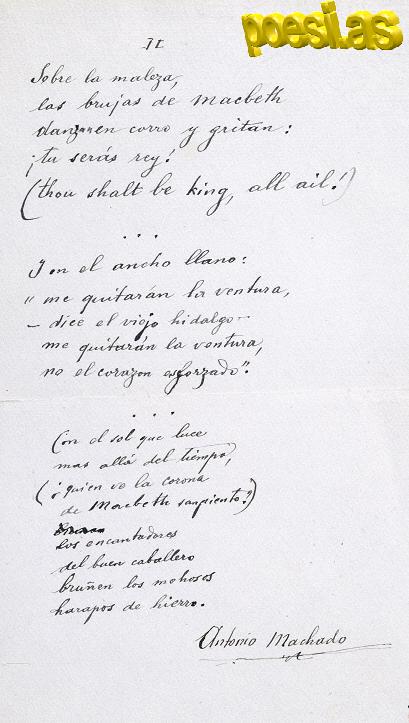 poesi.as
II
Sobre la maleza,
las brujas de Macbeth
danzan en corro y gritan:
¡tu serás rey!
(thou shalt be king, all ail!)
...
Y en el ancho llano:
"me quitarán la ventura,
— dice el viejo hidalgo —
me quitarán la ventura,
no el corazon esforzado".
...
Con el sol que luce
mas allá del tiempo,
(¿quien ve la corona
de Macbeth sangriento?)
Los encantadores
del buen caballero
bruñen los mohosos
harapos de hierro.
Antonio Machado